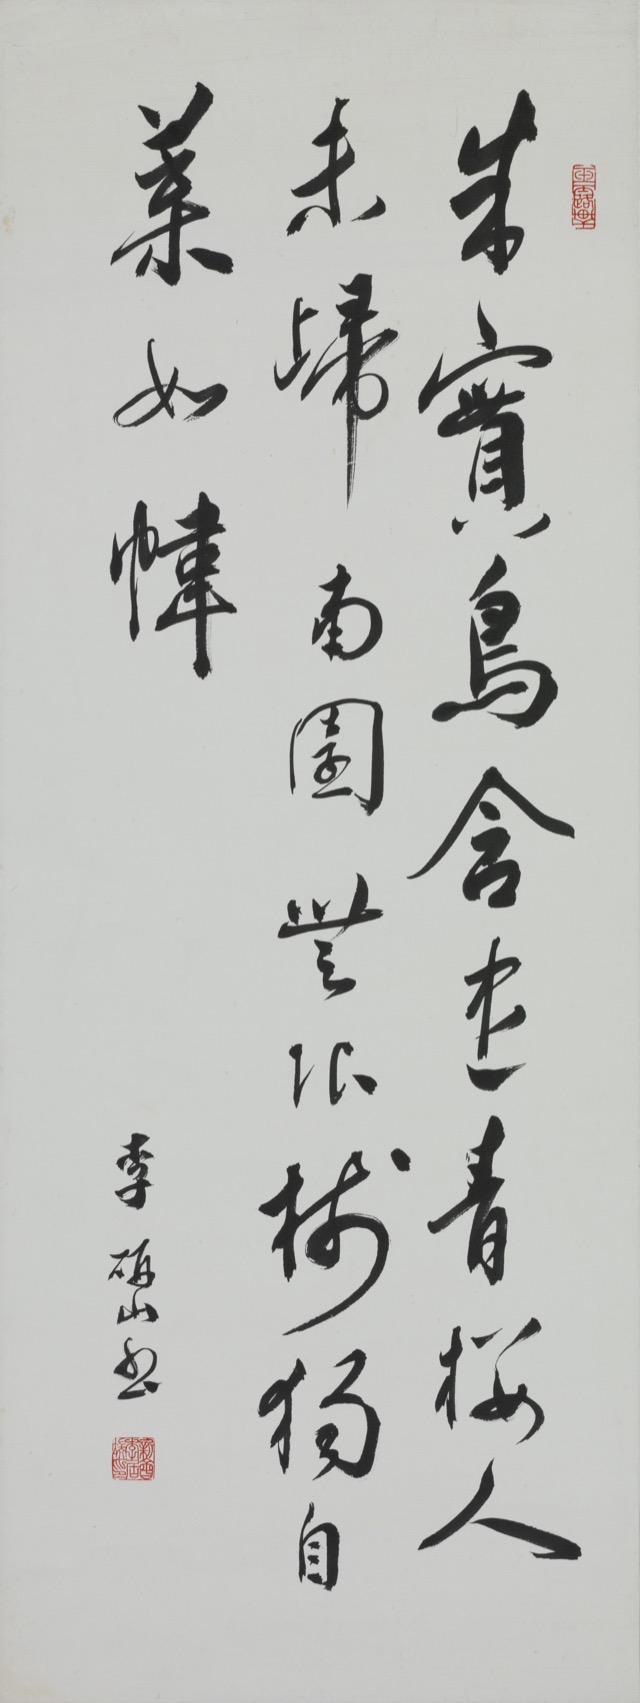 朱實鳥含盡青樓人
未歸南園無限樹獨自
葉如幃
李山書